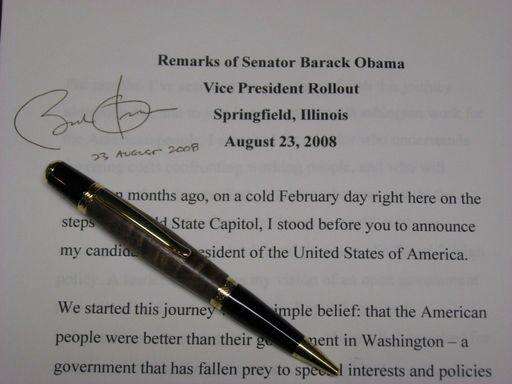 Remarks of Senator Barack Obama
Vice President Rollout
Springfield, Illinois
August 23, 2008
23 AUGUST 2008
months ago, on a cold February day right here on the
steps State Capitol, I stood before you to announce
my of the United States of America.
We started this journey belief: that the American
people were better than their in Washington – a
government that has fallen prey to special interests and policies